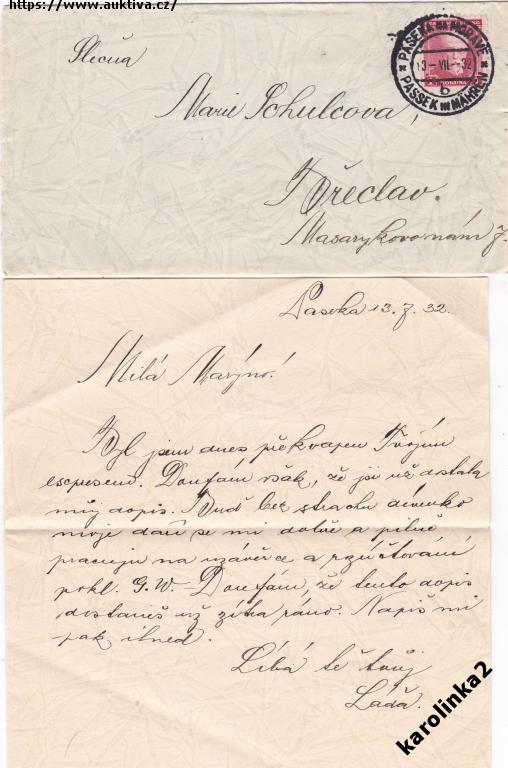 https://www.auktiva.cz/
Slečna
Marie Schulcova,
Břeclav.
Masarykovo nám 7.
PASEKA NA MORAVĚ
13.-VII.-32
b
PASSEK IN MÄHREN
Paseka 13.7.32.
Milá Marýno!
Byl jsem dnes překvapen Tvójim
escpresem. Doufám však, že jsi už dostala
můj dopis. Buď bez strachu děvenko
moje daří se mi dobře a pilně
pracuju na uzávěrce a rozúčtování
pokl. G.W. Doufám, že tento dopis
dostaneš už zítra ráno. Napiš mi
pak ihned.
Líbá tě tvůj
Láďa.
karolinka2